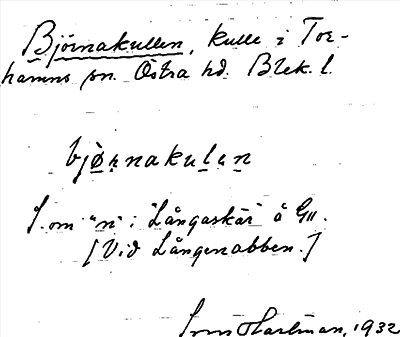 Björnakullen, kulle i Tor-
hamns sn. Östra hd. Blek. l.
bjørnakulan
S. om "n" i "Långaskär" å G11.
[Vid Långenabben.]
Hartman, 1932